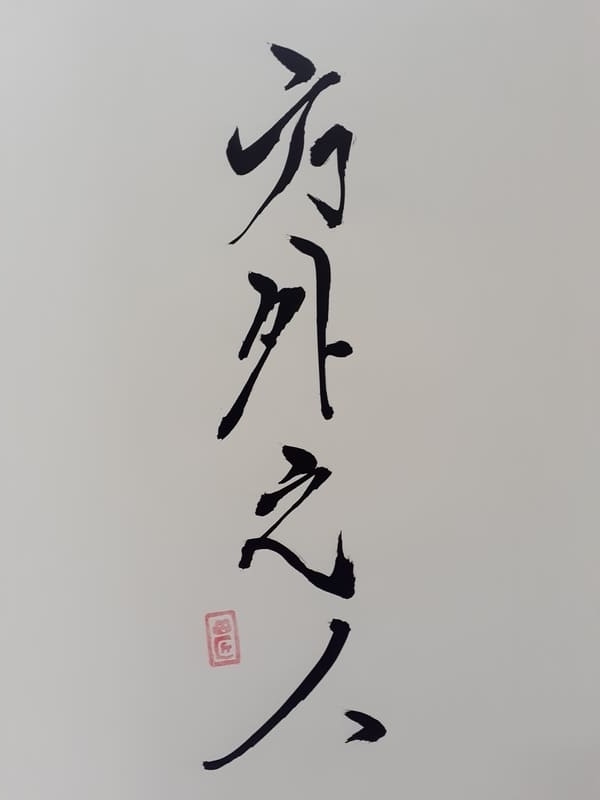 方外之人